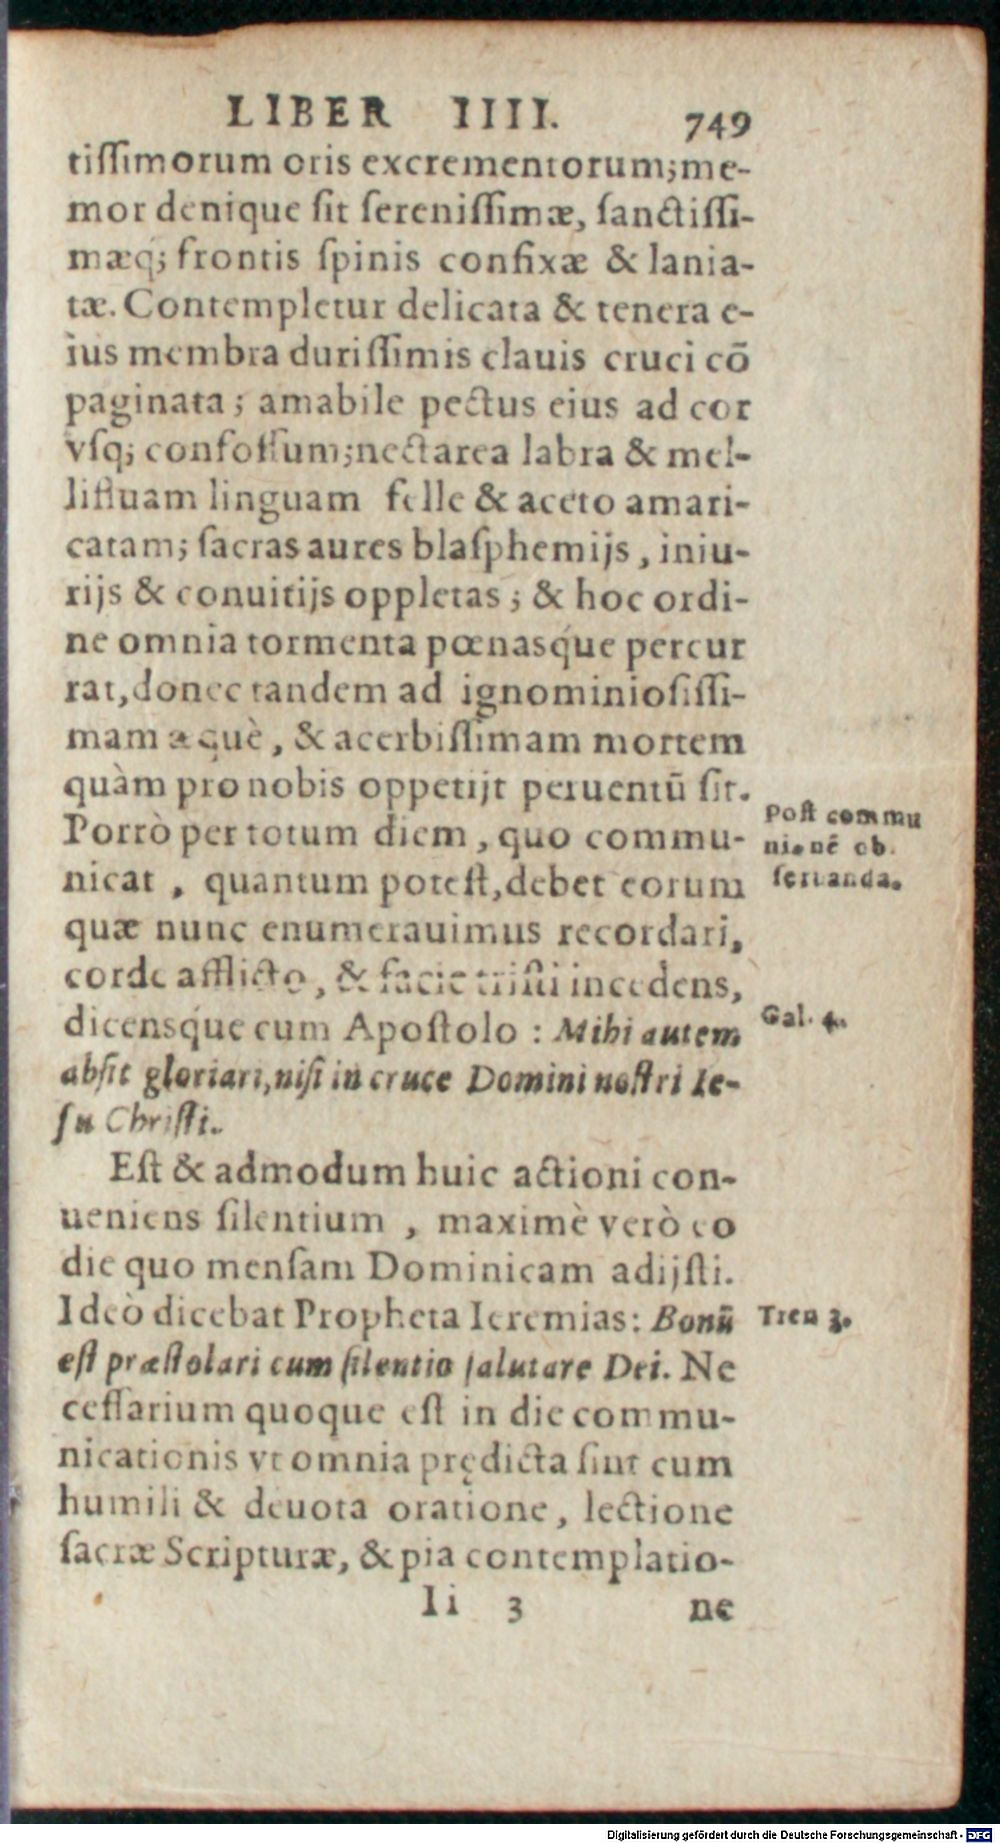 LIBER IIII. 749
tiſſimorum oris excrementorum; me-
mor denique ſit ſereniſſimæ, ſanctiſſi-
mæq; frontis ſpinis confixæ & lania-
tæ. Contempletur delicata & tenera e-
ius membra duriſſimis clauis cruci cō
paginata; amabile pectus eius ad cor
vſq; confoſſum; nectarea labra & mel-
lifluam linguam felle & aceto amari-
catam; ſacras aures blaſphemijs, iniu-
rijs & conuitijs oppletas; & hoc ordi-
ne omnia tormenta pœnasq́ue percur
rat, donec tandem ad ignominioſiſſi-
mam æquè, & acerbiſſimam mortem
quàm pro nobis oppetijt peruentū ſit.
Porrò per totum diem, quo commu-
nicat, quantum poteſt, debet eorum
quæ nunc enumerauimus recordari,
corde afflicto, & facie triſti incedens,
dicensq́ue cum Apoſtolo: Mihi autem
abſit gloriari, niſi in cruce Domini noſtri Ie-
ſu Chriſti.
Eſt & admodum huic actioni con-
ueniens ſilentium, maximè verò eo
die quo menſam Dominicam adijſti.
Ideò dicebat Propheta Ieremias: Bonū
eſt præſtolari cum ſilentio ſalutare Dei. Ne
ceſſarium quoque eſt in die commu-
nicationis vt omnia prędicta ſint cum
humili & deuota oratione, lectione
ſacræ Scripturæ, & pia contemplatio-
Ii 3 ne
Poſt commu
nionē ob
ſeruanda.
Gal. 4.
Tren 3.
Digitalisierung gefördert durch die Deutsche Forschungsgemeinschaft - DFG